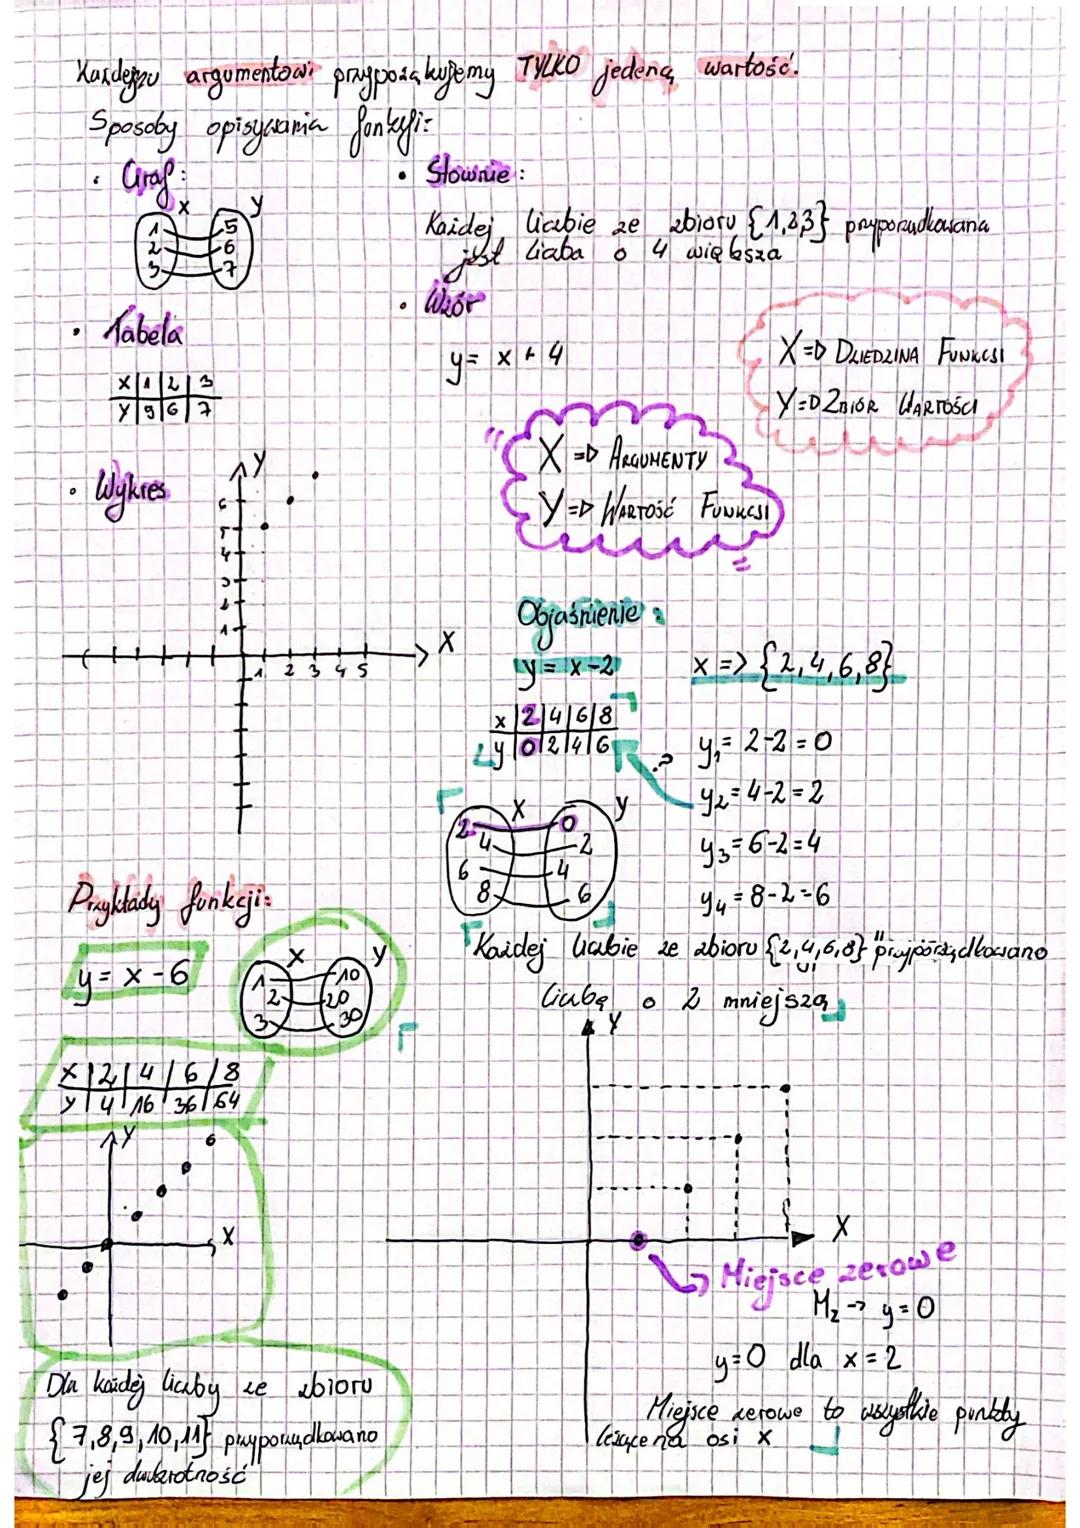 Każdemu argumentowi przyporządkujemy TYLKO jedeną wartość.
Sposoby opisywania funkcji:
• Graf:
X Y
1 5
2 6
3 7
• Tabela
X | 1 | 2 | 3
Y | 9 | 6 | 7
• Słownie:
Każdej liczbie ze zbioru {1,2,3} przyporządkowana
jest liczba o 4 większa
• Wzór
y = x + 4
X => DZIEDZINA FUNKCJI
Y => ZBIÓR WARTOŚCI
X => ARGUMENTY
Y => WARTOŚĆ FUNKCJI
• Wykres
Y
6
5
4
3
2
1
X
1 2 3 4 5
Objaśnienie:
y = x-2
x => {2,4,6,8}
x | 2 | 4 | 6 | 8
y | 0 | 2 | 4 | 6
?
y₁ = 2-2 = 0
y₂ = 4-2 = 2
y₃ = 6-2 = 4
y₄ = 8-2 = 6
X Y
2 0
4 2
6 4
8 6
Każdej liczbie ze zbioru {2,4,6,8} przyporządkowano
liczbę o 2 mniejszą
Y
X
Miejsce zerowe
M₂ -> y = 0
y = 0 dla x = 2
Miejsce zerowe to wszystkie punkty
leżące na osi x
Przykłady funkcji:
y = x - 6
X Y
1 10
2 20
3 30
X | 2 | 4 | 6 | 8
Y | 4 | 16 | 36 | 64
Y
X
Dla każdej liczby ze zbioru
{7,8,9,10,11} przyporządkowano
jej dwukrotność